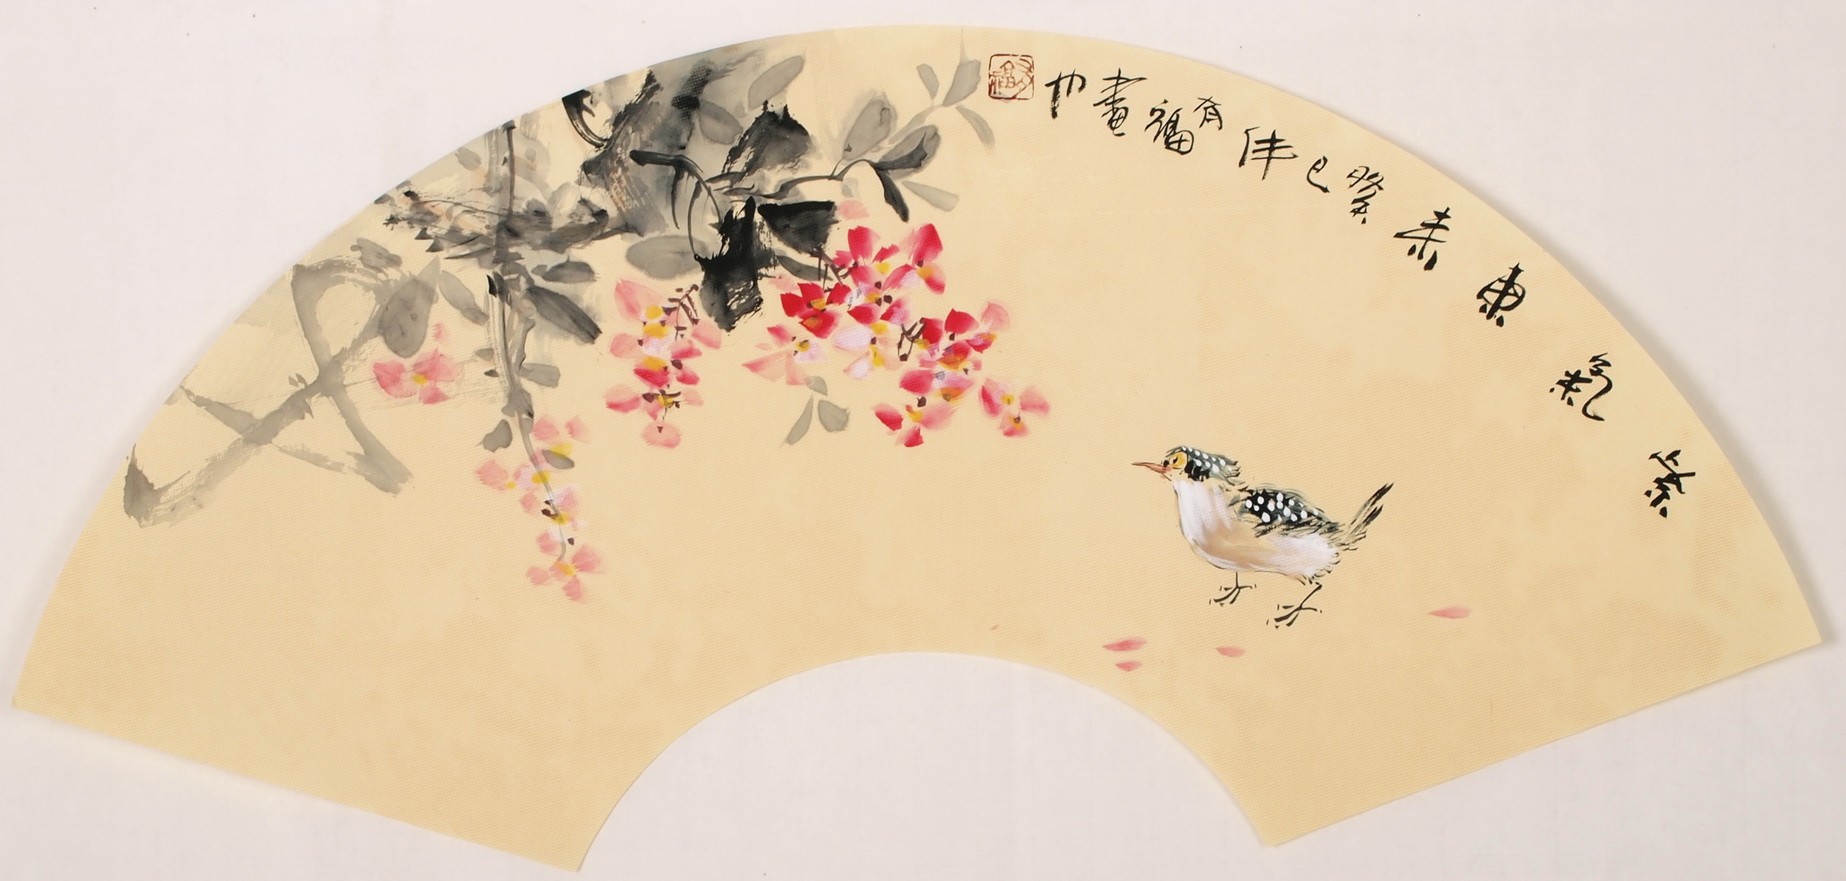 紫氣東來癸巳年有福畫也